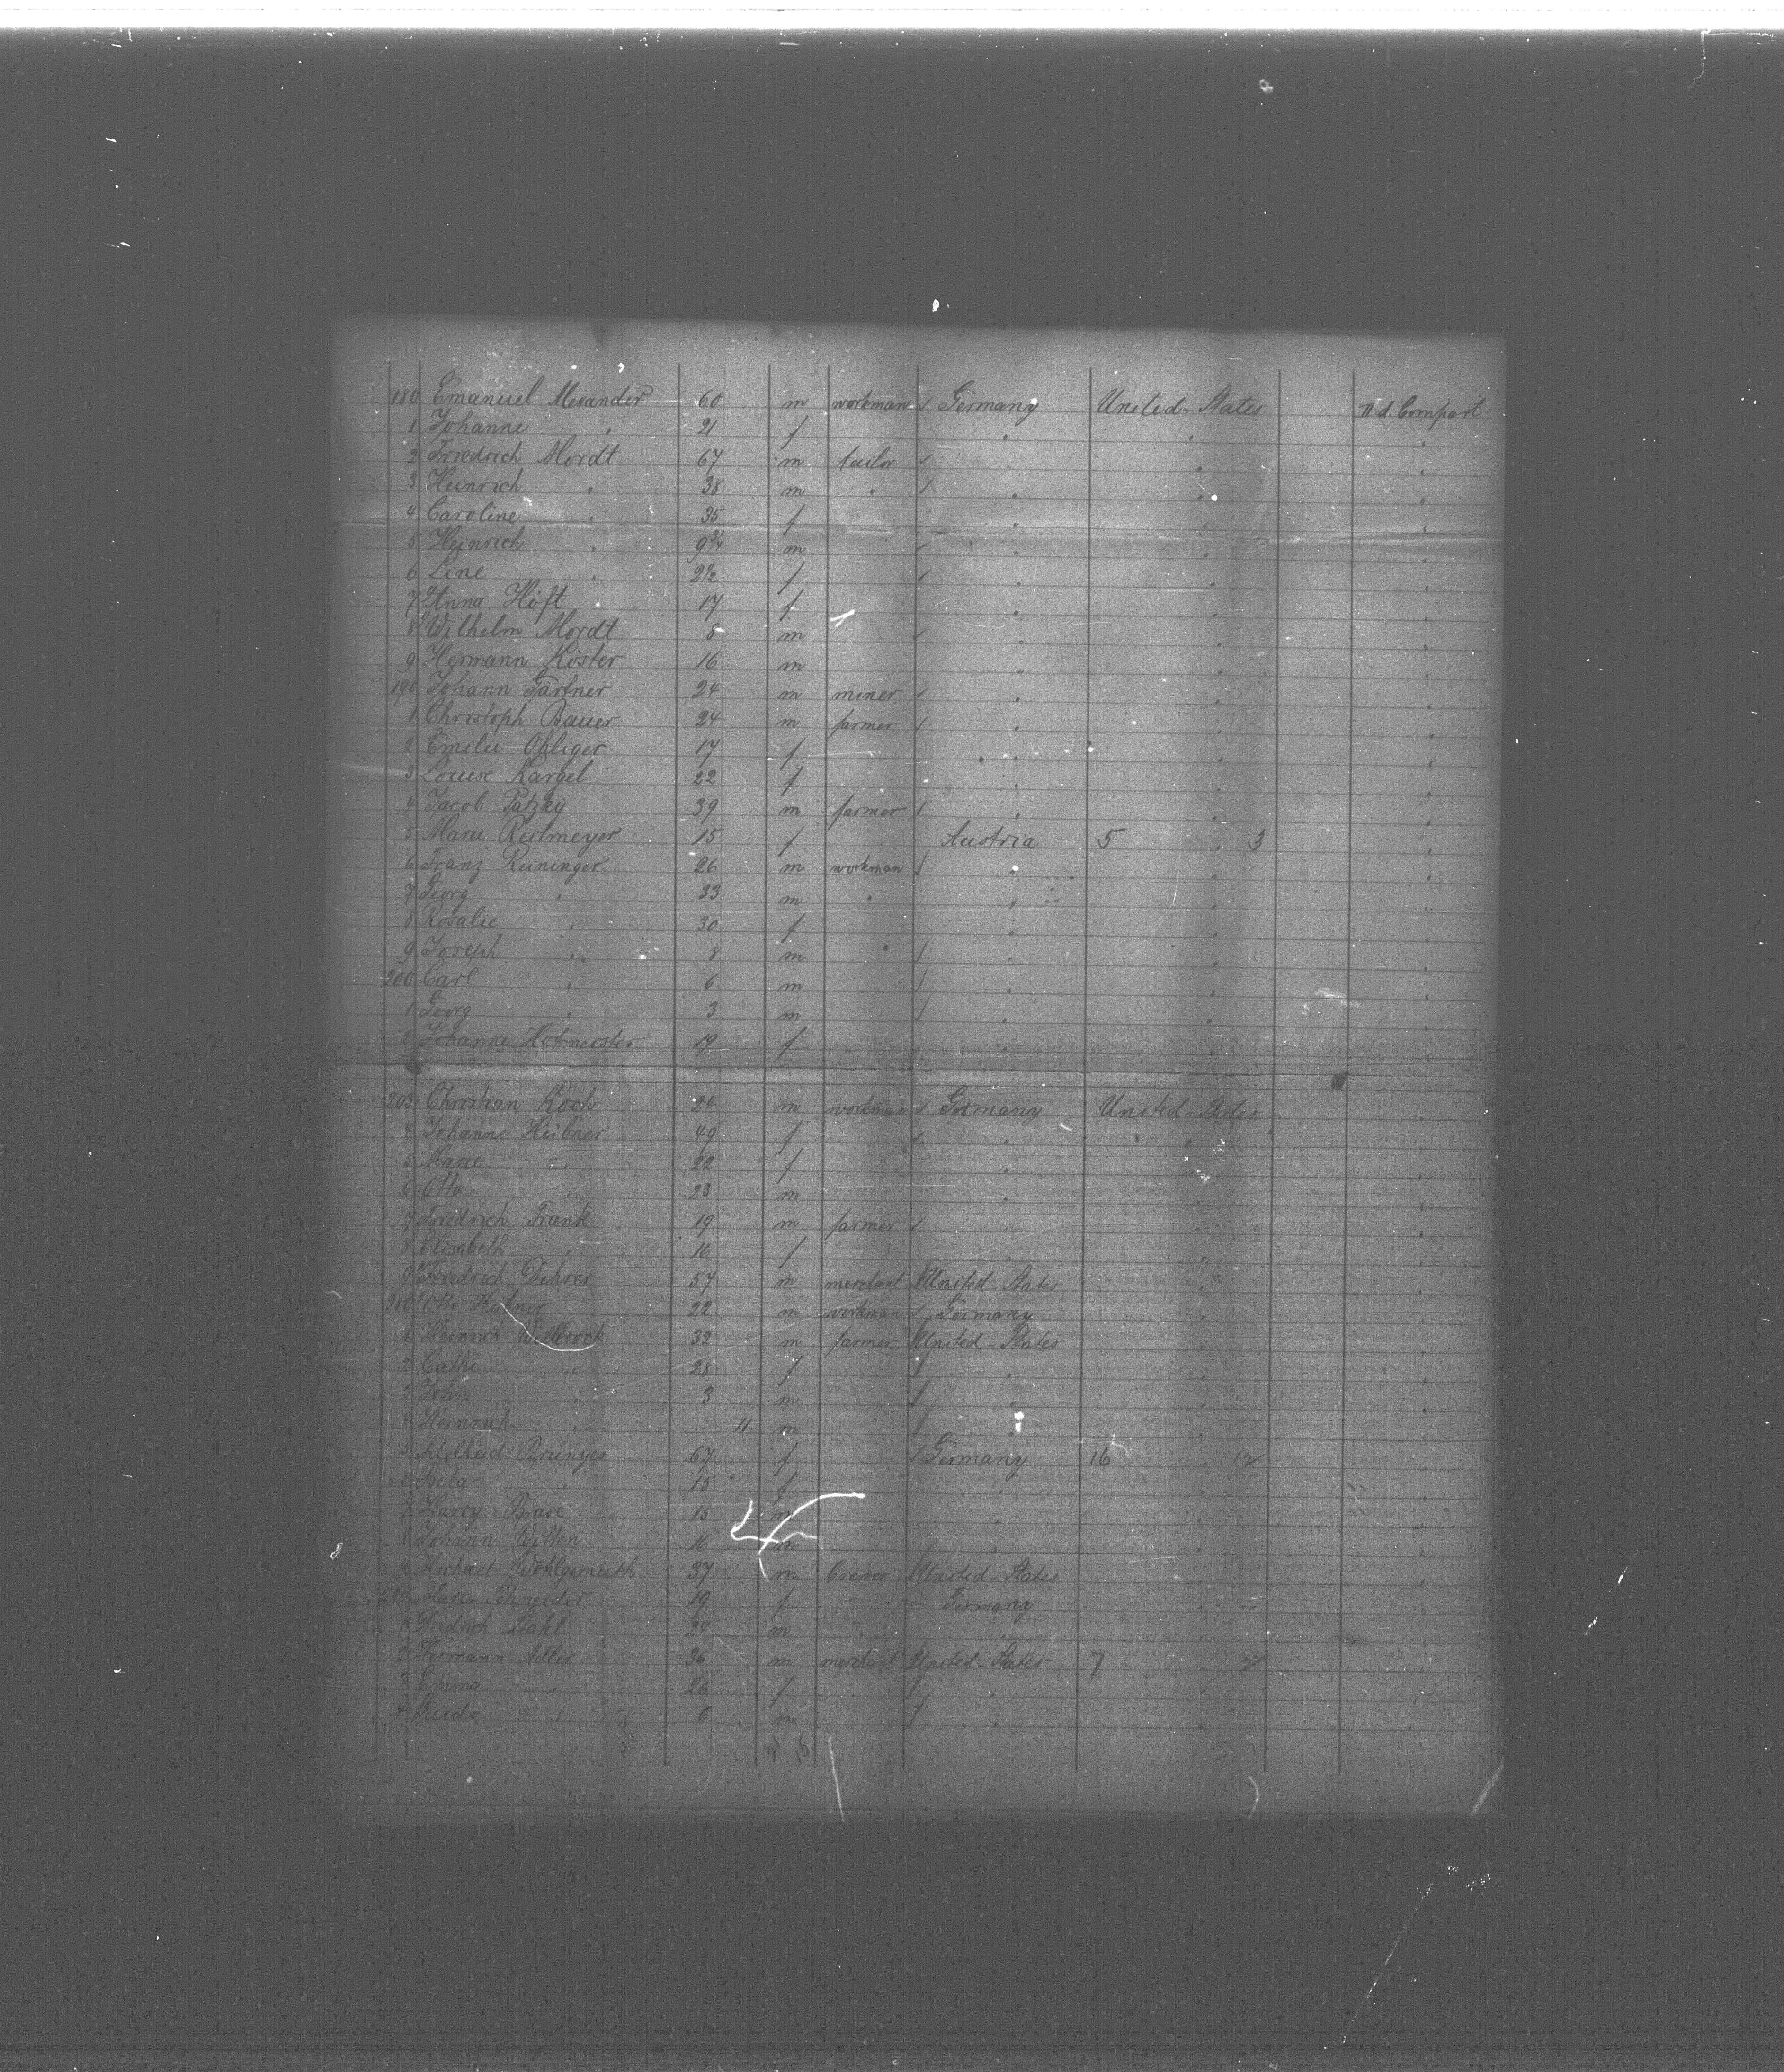 180 Emanuel Alexander 60 m workman Germany United-States IId Compart
1 Johanne " 21 f " " "
2 Friedrich Mordt 67 m tailor " " "
3 Heinrich " 38 m " " " "
4 Caroline " 35 f " " "
5 Heinrich " 9 3/4 m " " "
6 Line " 2 1/2 f " " "
7 Anna Höft 17 f " " "
8 Wilhelm Mordt 8 m " " "
9 Hermann Köster 16 m " " "
190 Johann 24 m miner " " "
1 Christoph Bauer 24 m farmer " " "
2 Emilie Obliger 17 f " " "
3 Louise Kargel 22 f " " "
4 Jacob 39 m farmer " " "
5 Marie 15 f Austria 5 " 3 "
6 Franz Reininger 26 m workman " " "
7 Georg " 33 m " " " "
8 Rosalie " 30 f " " "
9 Joseph " 8 m " " "
200 Carl " 6 m " " "
1 Georg " 3 m " " "
2 Johanne Hofmeister 19 f " " "
203 Christian Koch 24 m workman Germany United-States "
4 Johanne Hübner 49 f " " "
5 Marie " 22 f " " "
6 Otto " 23 m " " "
7 Friedrich Frank 19 m farmer " " "
8 Elisabeth " 16 f " " "
9 Friedrich 57 m merchant United States " "
210 Otto Hübner 22 m workman Germany " "
1 Heinrich Wellbrock 32 m farmer United-States " "
2 Cathe " 28 f " " "
3 John " 3 m " " "
4 Heinrich " 11 m " " "
5 Adelheid Brünjes 67 f Germany 16 " 12 "
6 Beta " 15 f " " "
7 Harry Brase 15 m " " "
8 Johann Witten 16 m " " "
9 Michael Wohlgemuth 37 m brewer United-States " "
220 Marie Schneider 19 f Germany " "
1 Diedrich Stahl 24 m " " "
2 Hermann Adler 36 m merchant United-States 7 " 2 "
3 Emma " 26 f " " "
4 Guido " 6 m " " "